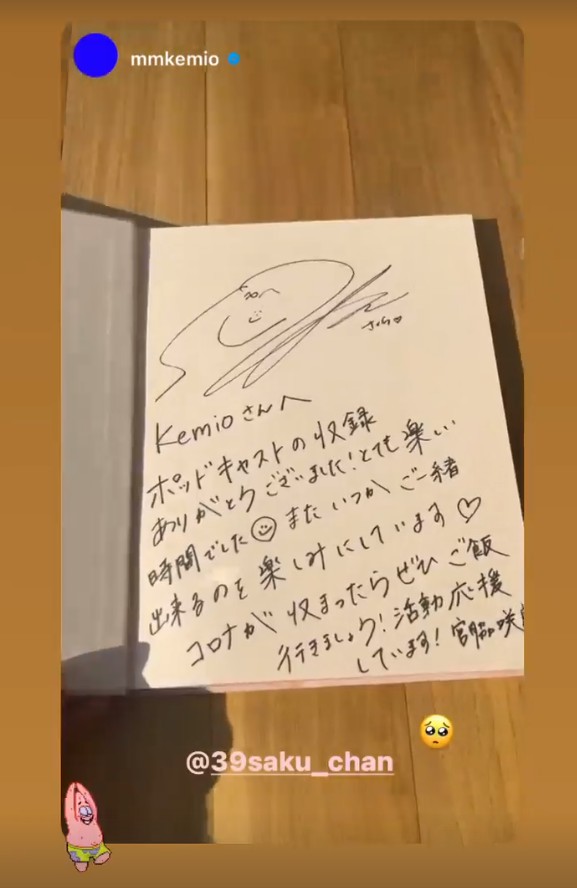 mmkemio
さくら
Kemioさんへ
ポッドキャストの収録
ありがとうございました!とても楽しい
時間でした☺また いつか ご一緒
出来るのを 楽しみにしています♡
コロナが 収まったらぜひ ご飯
行きましょう!活動応援
しています! 宮脇咲
@39saku_chan